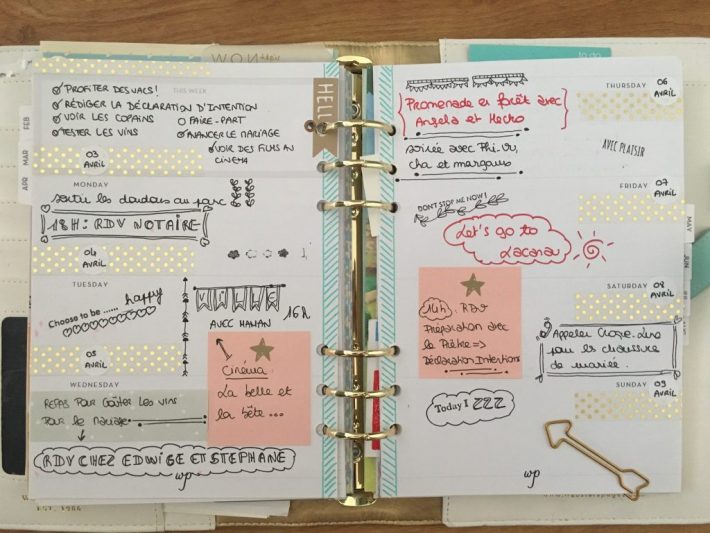 THIS WEEK
PROFITER DES VACS!
RÉDIGER LA DÉCLARATION D'INTENTION
VOIR LES COPAINS
FAIRE-PART
TESTER LES VINS
AVANCER LE MARIAGE
VOIR DES FILMS AU
CINÉMA
HELLO
FEB
MAR
APR
03
AVRIL
MONDAY
Sortir les doudous au parc
18H: RDV NOTAIRE
04
AVRIL
TUESDAY
Choose to be ...... happy
AVEC HANAN
15H
05
AVRIL
Cinéma
La belle et
la bête ...
WEDNESDAY
REPAS POUR GOÛTER LES VINS
POUR LE MARIAGE
RDV CHEZ EDWIGE ET STEPHANE
wp
THURSDAY
06
AVRIL
Promenade en forêt avec
Angela et Hecko
Soirée avec Phi.Vu,
cha et margaux
AVEC PLAISIR
FRIDAY
07
AVRIL
DON'T STOP ME NOW!
Let's go to
Lacana
MAY
JUN
SATURDAY
08
AVRIL
14h. RDV
Préparation avec
le Prêtre =>
Déclaration Intentions
Appeler
pour les chaussure
de mariée.
SUNDAY
09
AVRIL
Today I ZZZ
wp
to do
EST. 1964